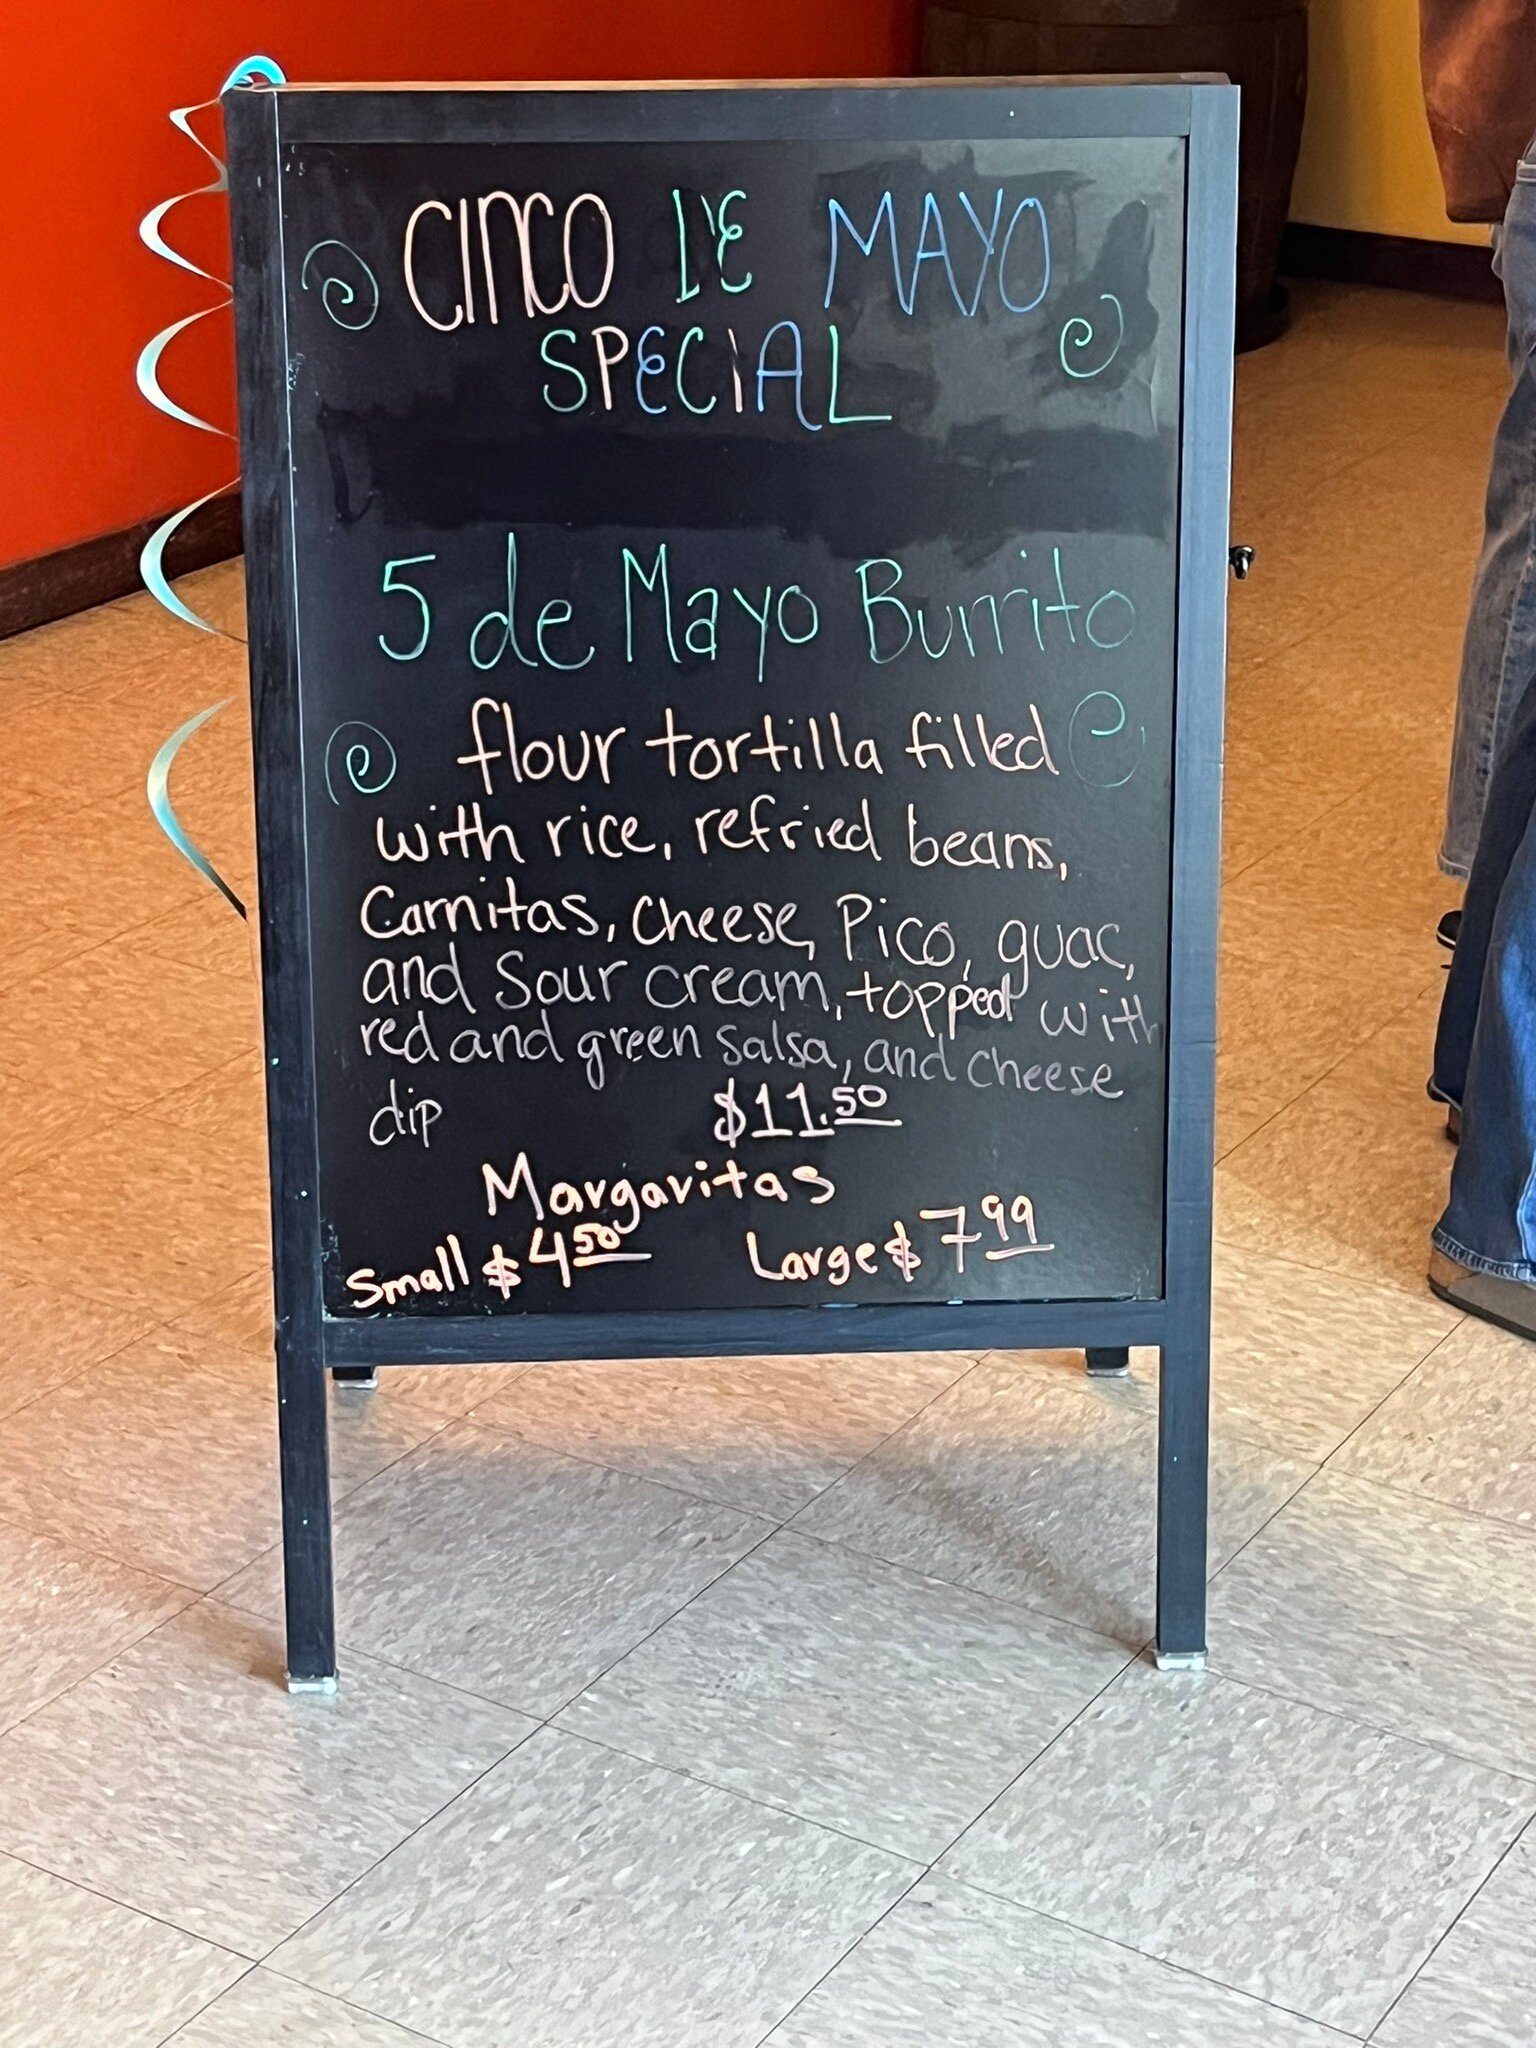 CINCO DE MAYO
SPECIAL
5 de Mayo Burrito
flour tortilla filled
with rice, refried beans,
Carnitas, cheese, Pico, guac,
and Sour cream, topped with
red and green salsa, and cheese
dip $11.50
Margaritas
Small $4.50 Large $7.99